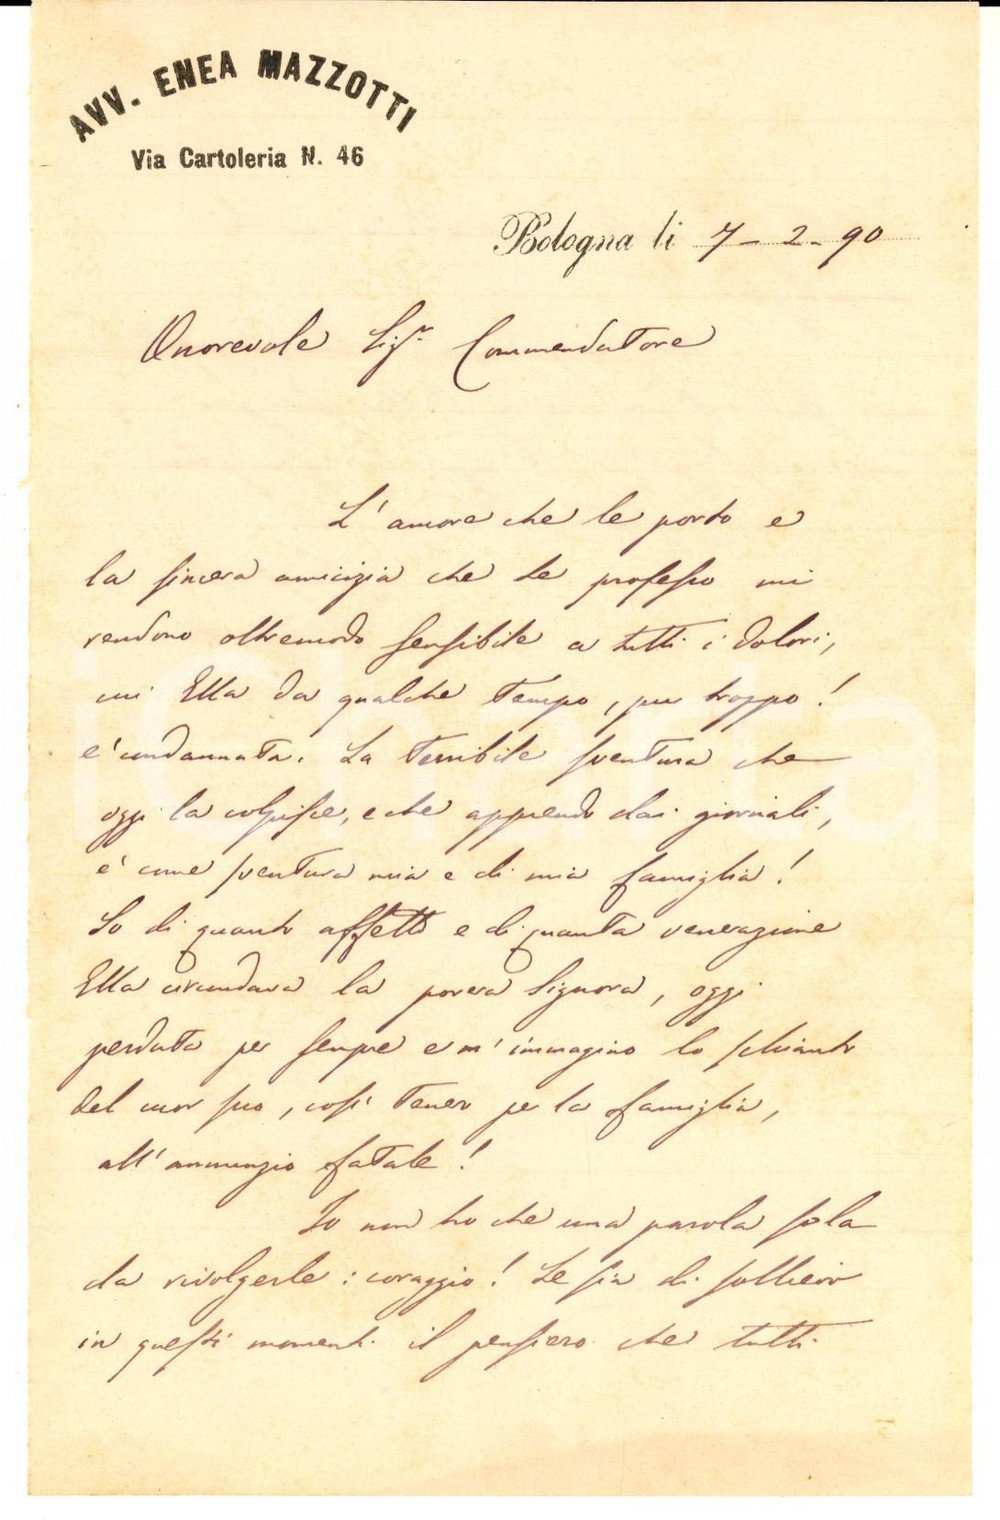 AVV. ENEA MAZZOTTI
Via Cartoleria N. 46
Bologna li 7 - 2 - 90
Onorevole Sigr. Commendatore
L'amore che le porto e
la sincera amicizia che le professo mi
rendono oltremodo sensibile a tutti i dolori,
cui Ella da qualche tempo, pur troppo!
e' condannata. La terribile sventura che
oggi la colpisce, e che apprendo dai giornali,
e' come sventura mia e di mia famiglia!
So di quanto affetto e di quanta venerazione
Ella circondava la povera Signora, oggi
perduta per sempre e m'immagino lo schianto
del cuor suo, così tenero per la famiglia,
all'annunzio fatale!
Io non ho che una parola sola
da rivolgerle: coraggio! Le sia di sollievo
in questi momenti il pensiero che tutti